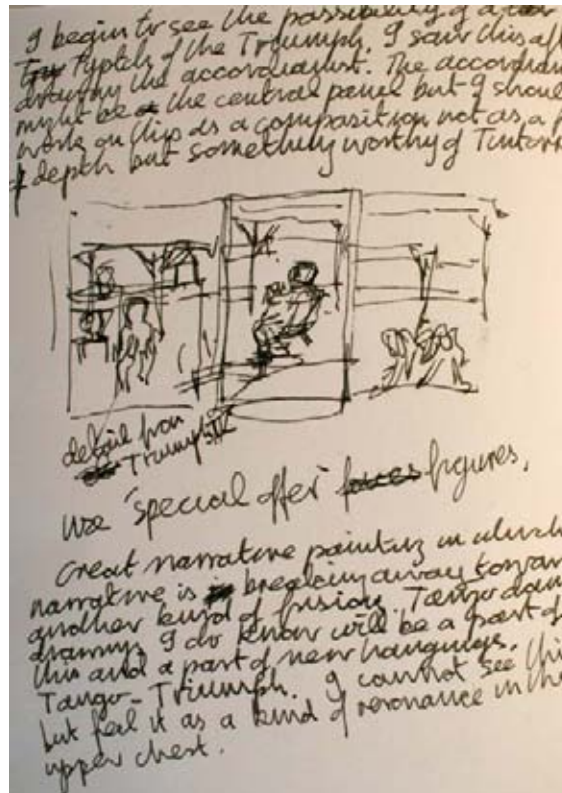 I begin to see the possibility of a
Typtch of the Triumph. I saw this aft
drawing the accordianist. The accordian
might be the central panel but I shoul
work on this as a composition not as a p
depth but something worthy of Tintore
detail from
Triumph IV
use "special offer" faces figures,
Great narrative painting in which
narrative is breaking away towar
another kind of fusion. Tango dan
drawings I do know will be a part of
this and a part of new hangings.
Tango-Triumph. I cannot see thi
but feel it as a kind of resonance in the
upper chest.